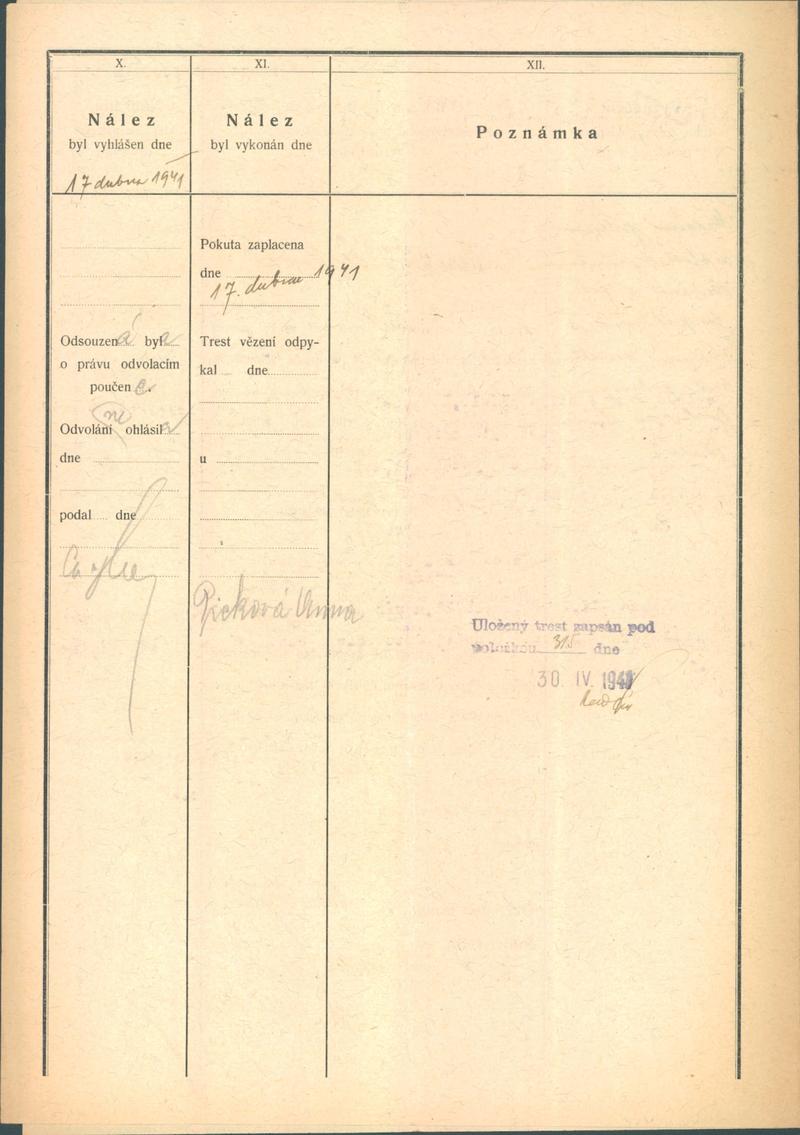 X.
Nález
byl vyhlášen dne
17 dubna 1941
Odsouzená byla
o právu odvolacím
poučena.
Odvolání neohlásila
dne
podal dne
XI.
Nález
byl vykonán dne
Pokuta zaplacena
dne 17. dubna 1941
Trest vězení odpy-
kal dne
u
Picková Anna
XII.
Poznámka
Uložený trest zapsán pod
položkou 315 dne
30. IV. 1941